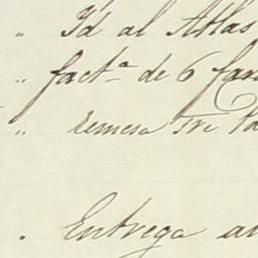 " Id al Atlas
" factª de 6 far
" remesa Tre
. Entrega a